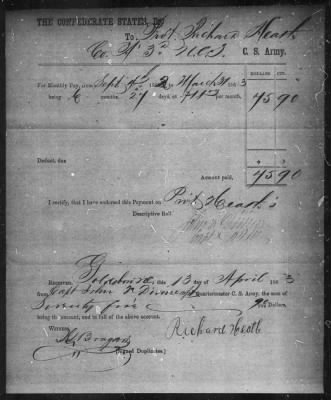 THE CONFEDERATE STATES, Dr.
To Pvt. Richard Heath
Co. 3d N.C.T. C. S. Army.
DOLLARS CTS.
For Monthly Pay, from Sept 186 to March 31 1863
being 6 months, 27 days at $11 per month, 75 90
Deduct, due
Amount paid, 75 90
I certify, that I have endorsed this Payment on Pvt Heath's
Descriptive Roll.
RECEIVED, Goldsboro, this 13 day of April 1863
from Capt John Quartermaster C. S. Army, the sum of
Seventy five 90 Dollars,
being the amount, and in full of the above account.
Witness
Richard Heath
(Signed Duplicates.)